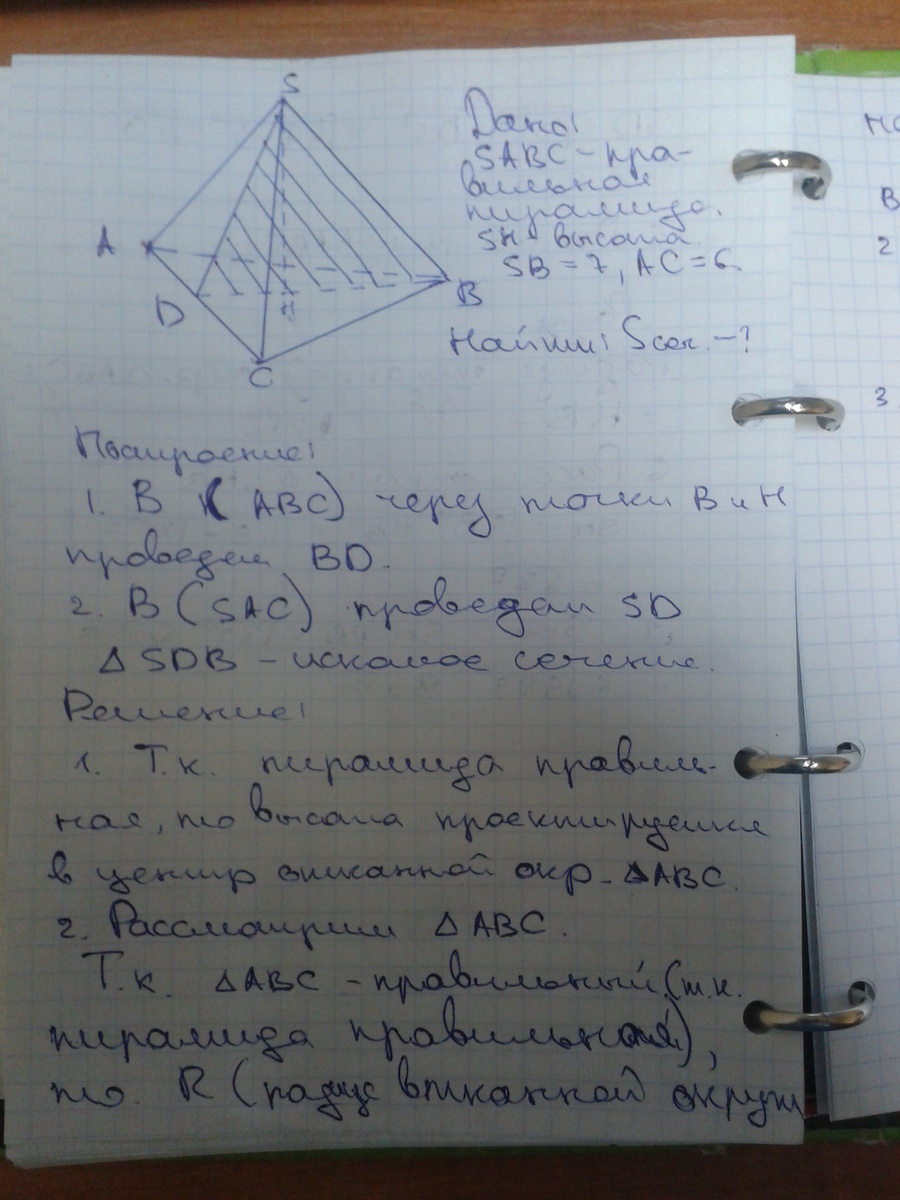 S
A
D
H
B
C
Дано:
SABC - пра-
вильная
пирамида.
SH - высота.
SB = 7, AC = 6.
Найти: Sсеч. - ?
Построение:
1. В (ABC) через точки B и H
проведем BD.
2. В (SAC) проведем SD
Δ SDB - искомое сечение.
Решение:
1. Т.к. пирамида правиль-
ная, то высота проектируется
в центр вписанной окр. ΔABC.
2. Рассмотрим Δ ABC.
Т.к. ΔABC - правильный (т.к.
пирамида правильная),
то R (радиус вписанной окружн
но
В
2
3